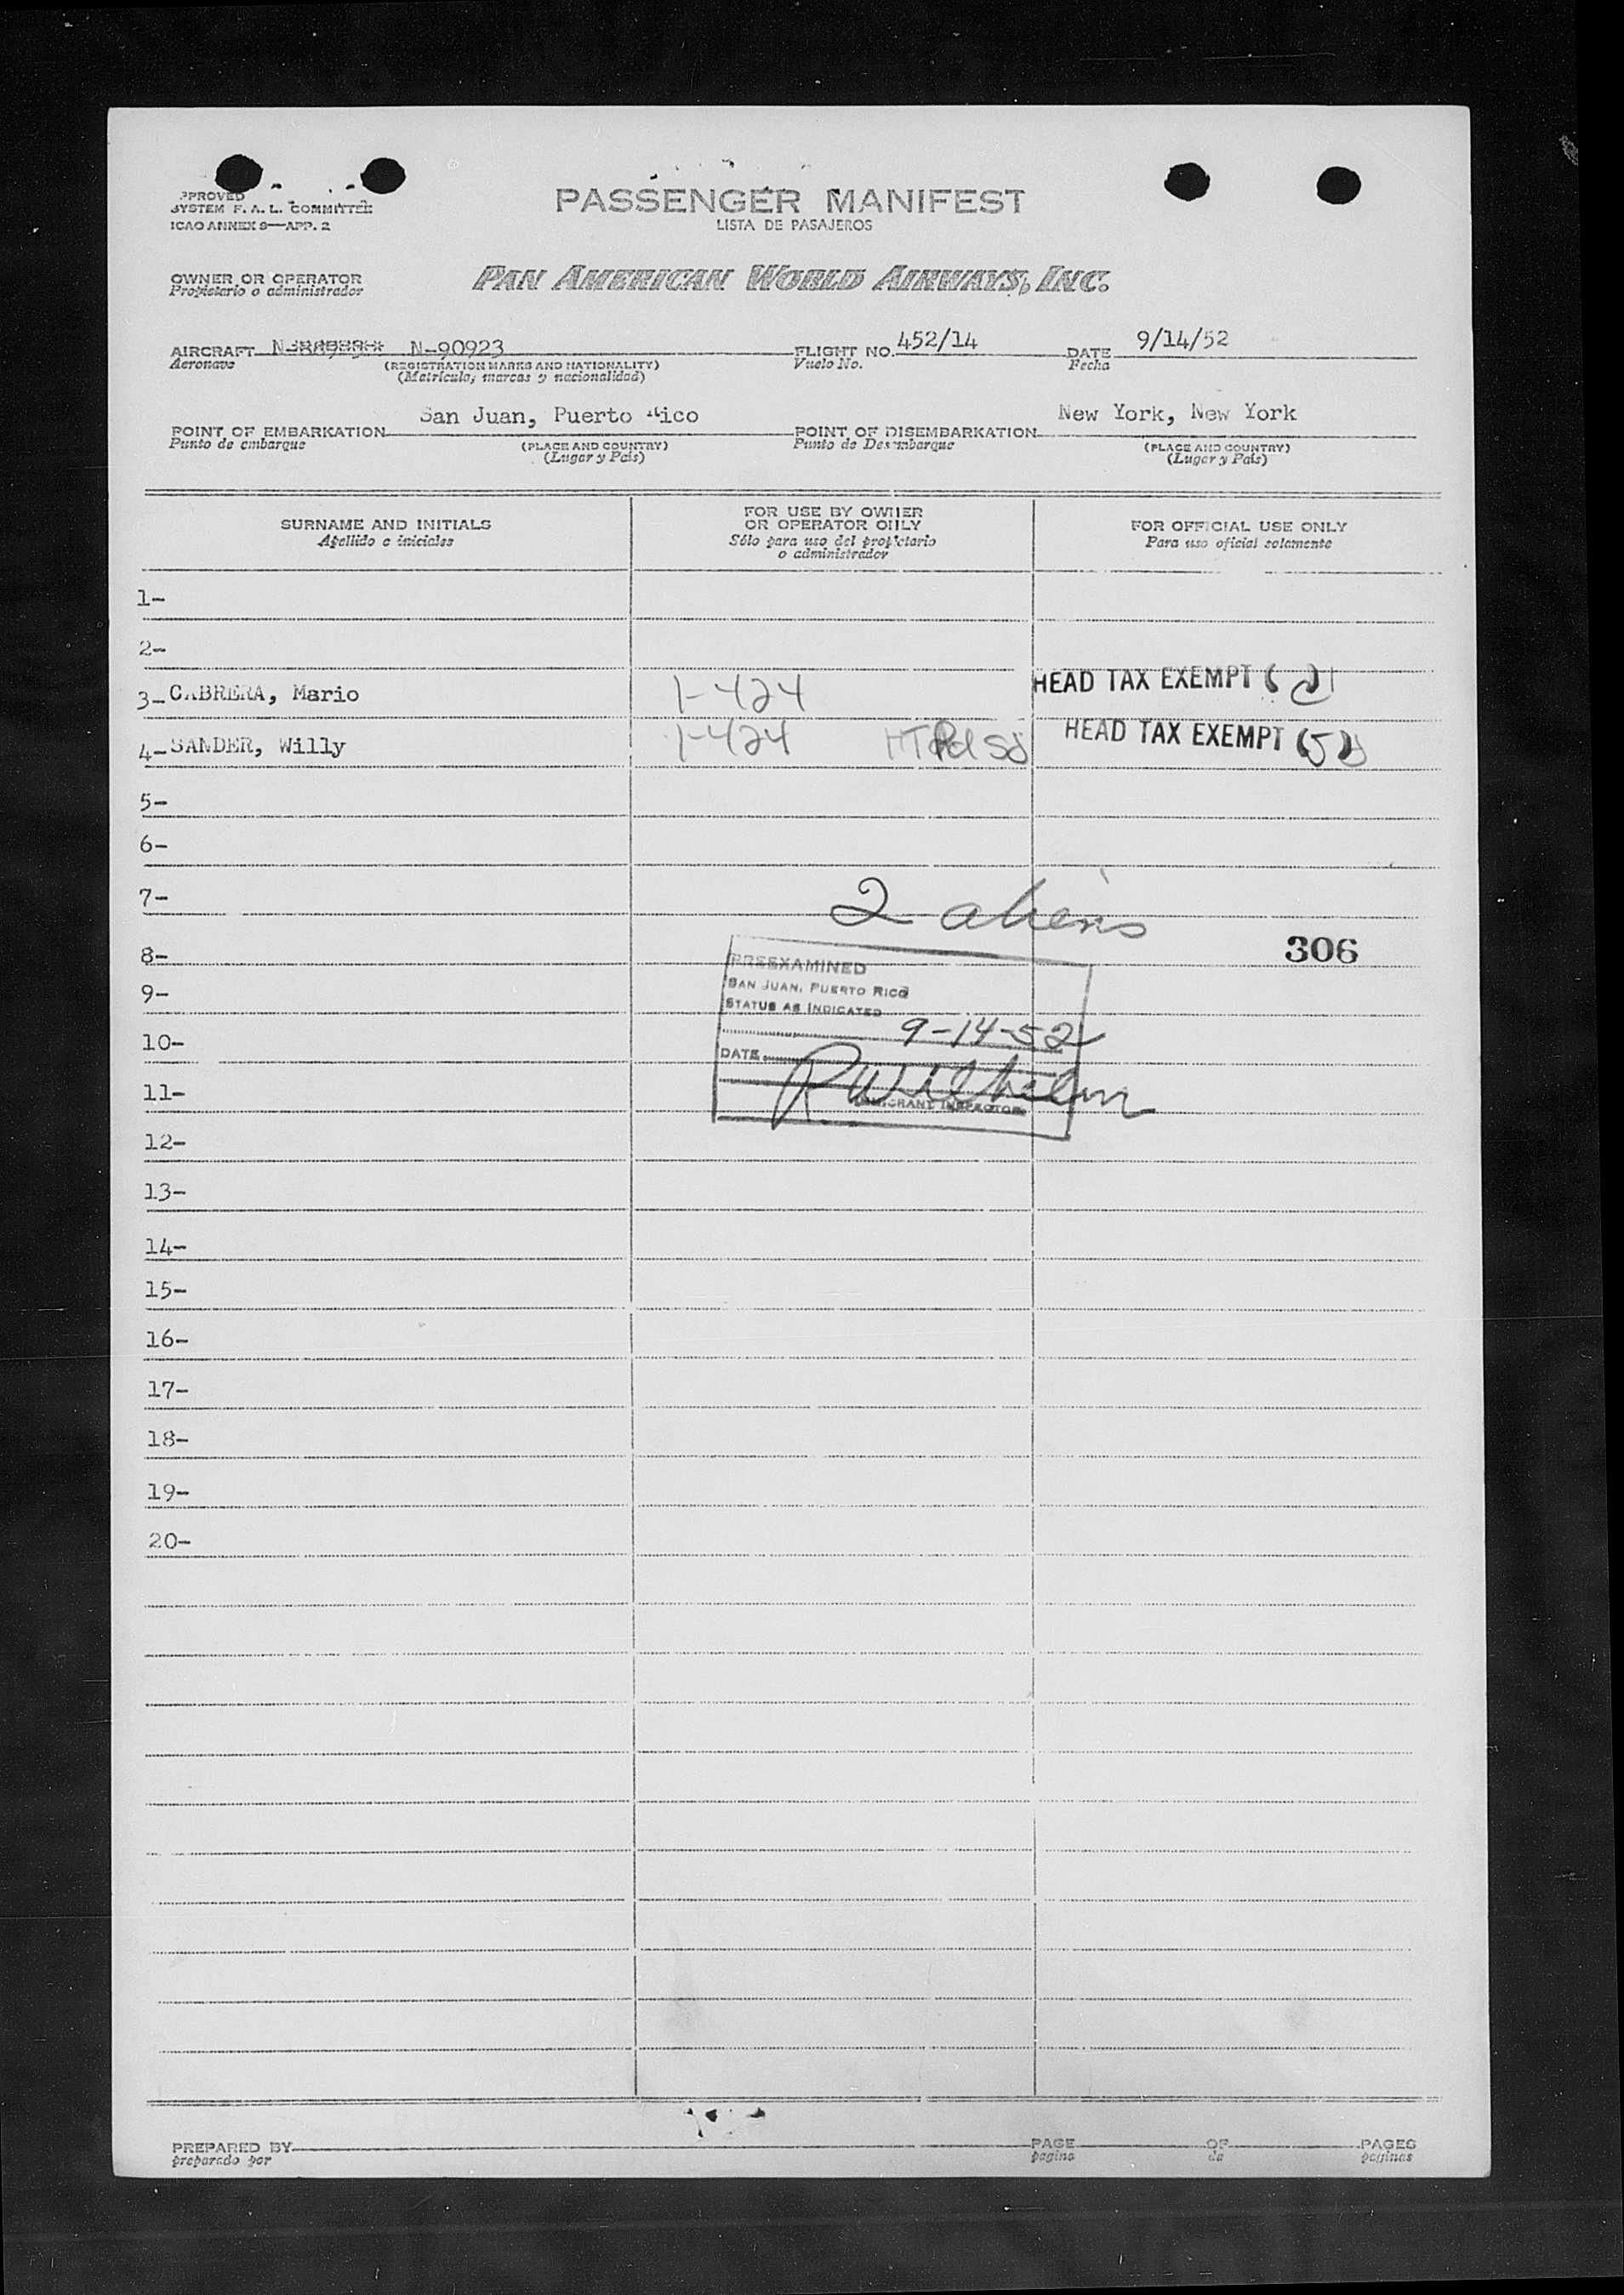 PPROVED
SYSTEM F. A. L. COMMITTEE
ICAO ANNEX 9—APP. 2
PASSENGER MANIFEST
LISTA DE PASAJEROS
OWNER OR OPERATOR
Propietario o administrador
PAN AMERICAN WORLD AIRWAYS, INC.
AIRCRAFT N-90923
Aeronave
(REGISTRATION MARKS AND NATIONALITY)
(Matrícula, marcas y nacionalidad)
FLIGHT NO. 452/14
Vuelo No.
DATE 9/14/52
Fecha
POINT OF EMBARKATION San Juan, Puerto Rico
Punto de embarque
(PLACE AND COUNTRY)
(Lugar y País)
POINT OF DISEMBARKATION New York, New York
Punto de Desembarque
(PLACE AND COUNTRY)
(Lugar y País)
SURNAME AND INITIALS
Apellido e iniciales
FOR USE BY OWNER
OR OPERATOR ONLY
Sólo para uso del propietario
o administrador
FOR OFFICIAL USE ONLY
Para uso oficial solamente
1-
2-
3- CABRERA, Mario 1-424 HEAD TAX EXEMPT
4- SANDER, Willy 1-424 HEAD TAX EXEMPT
5-
6-
7-
2 aliens
8-
306
PREEXAMINED
SAN JUAN, PUERTO RICO
STATUS AS INDICATED
9-
9-14-52
10-
DATE
R Wilhelm
IMMIGRANT INSPECTOR
11-
12-
13-
14-
15-
16-
17-
18-
19-
20-
PREPARED BY
preparado por
PAGE OF PAGES
pagina de paginas